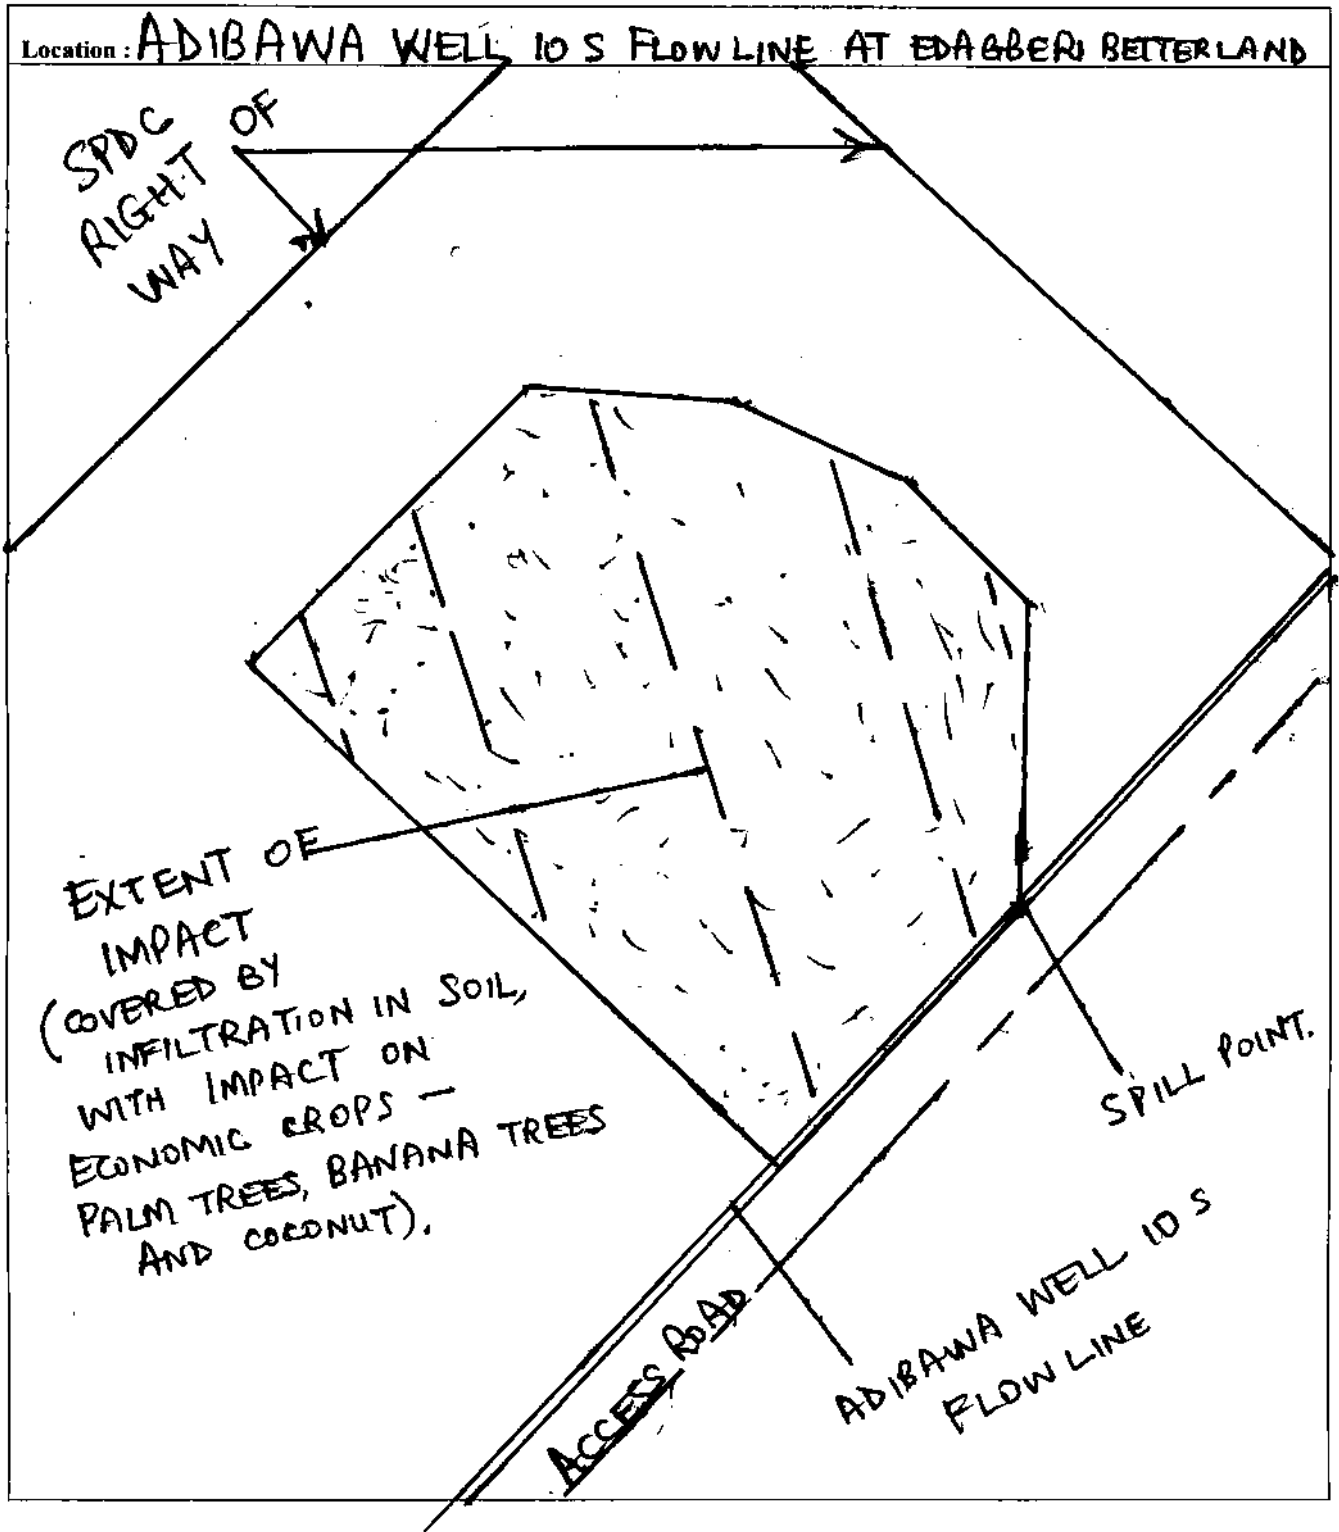 Location : ADIBAWA WELL 10 S FLOW LINE AT EDAGBERI BETTERLAND
SPDC
RIGHT OF
WAY
EXTENT OF
IMPACT
(COVERED BY
INFILTRATION IN SOIL,
WITH IMPACT ON
ECONOMIC CROPS —
PALM TREES, BANANA TREES
AND COCONUT).
SPILL POINT.
ADIBAWA WELL 10 S
FLOW LINE
ACCESS ROAD